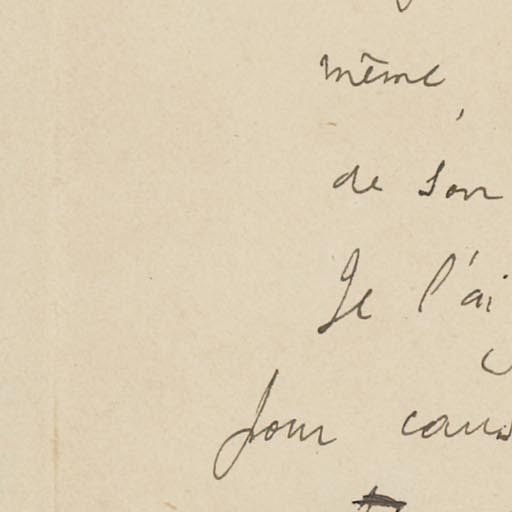 même,
de son
Je l'ai
pour caus